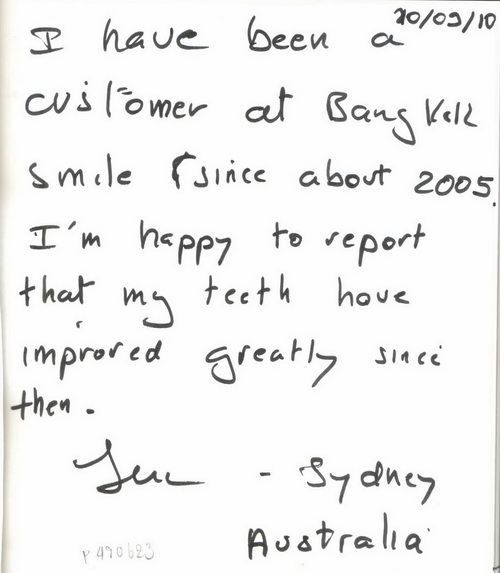 20/09/10
I have been a
customer at Bangkok
Smile since about 2005.
I'm happy to report
that my teeth have
improved greatly since
then.
- Sydney
Australia
P490623